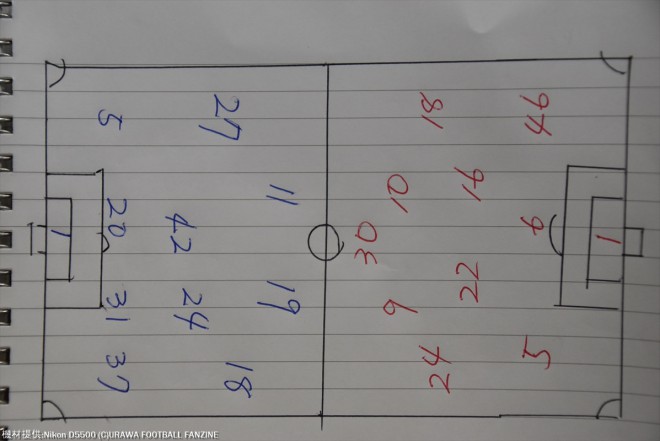 5
27
20
11
1
42
31
24
19
37
18
18
46
10
16
30
6
1
9
22
24
5
機材提供:Nikon D5500 (C)URAWA FOOTBALL FANZINE